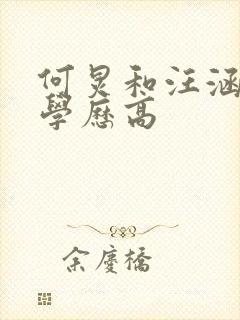 何炅和汪涵
學歷高
余慶橋